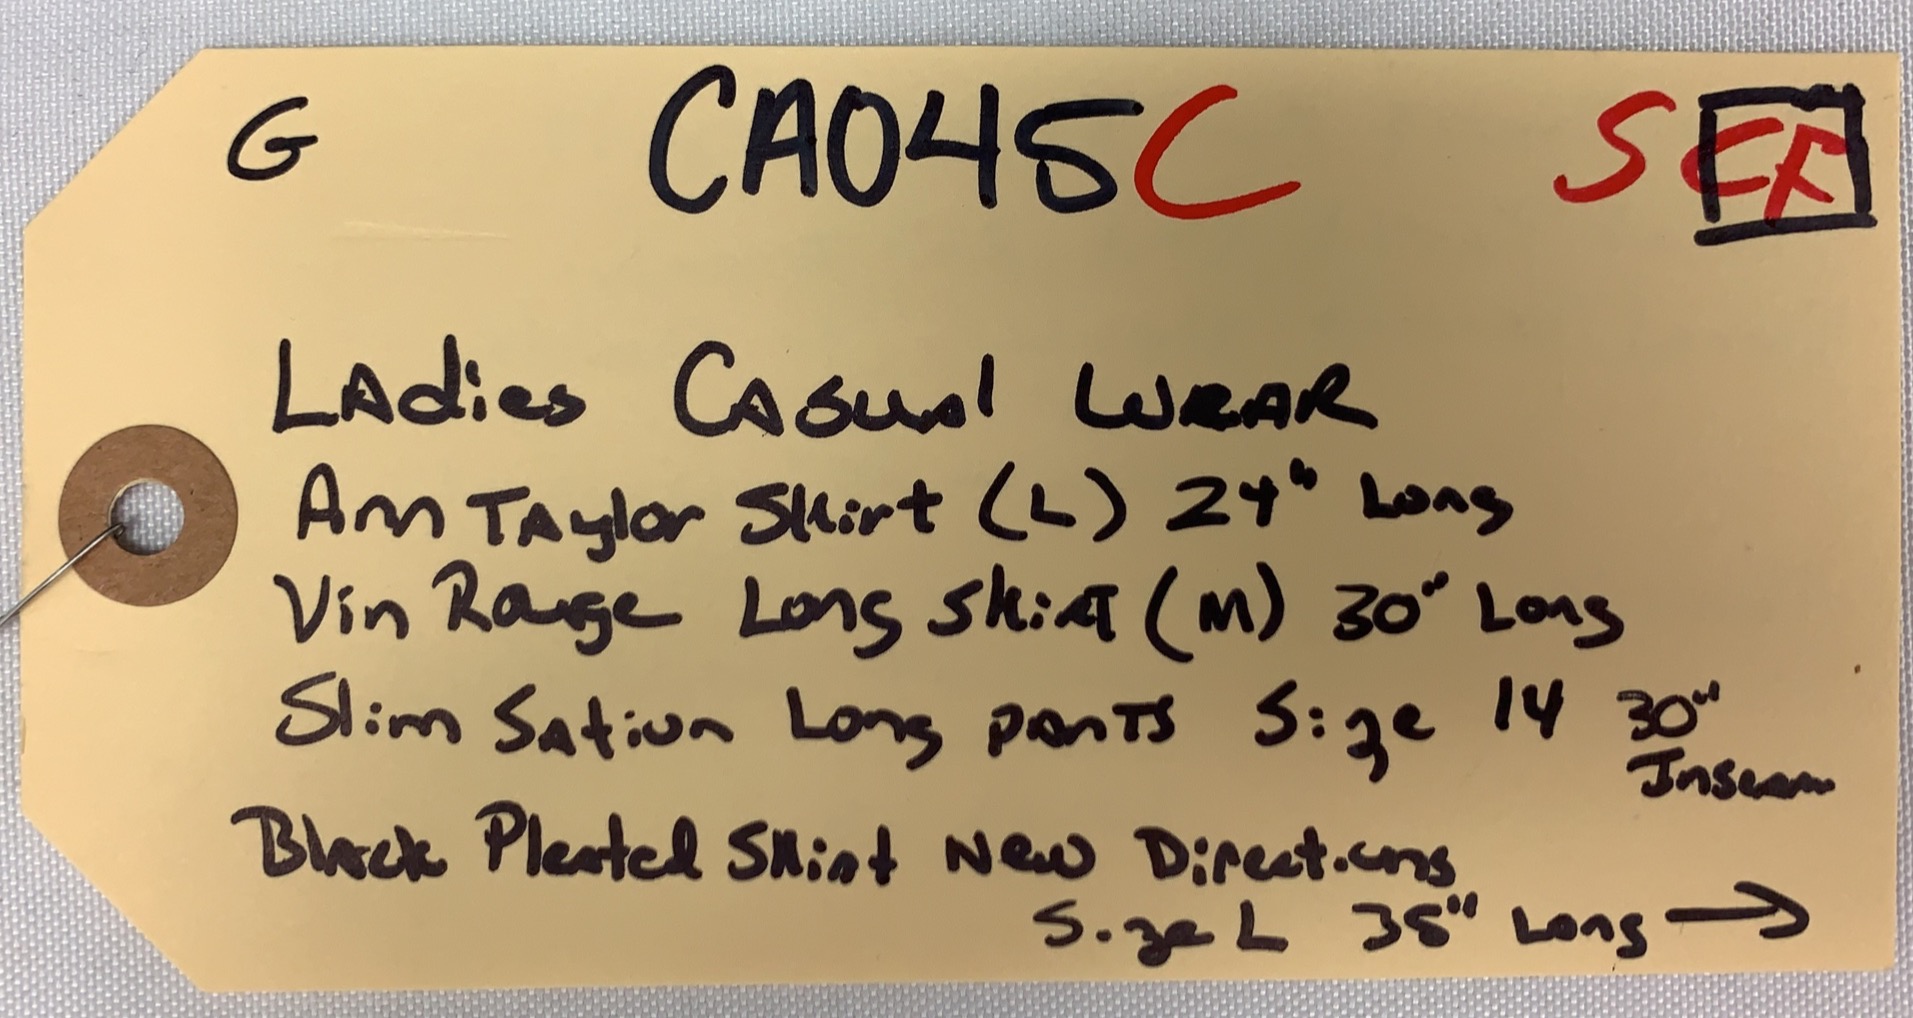 G CA045C SCF
LAdies CASual WEAR
Ann TAylor Skirt (L) 24" Long
Vin Rouge Long SkiRT (M) 30" Long
Slim SAtiun Long panTS Size 14 30"
Inseam
Black Pleated Skirt New Directions
Size L 35" Long →